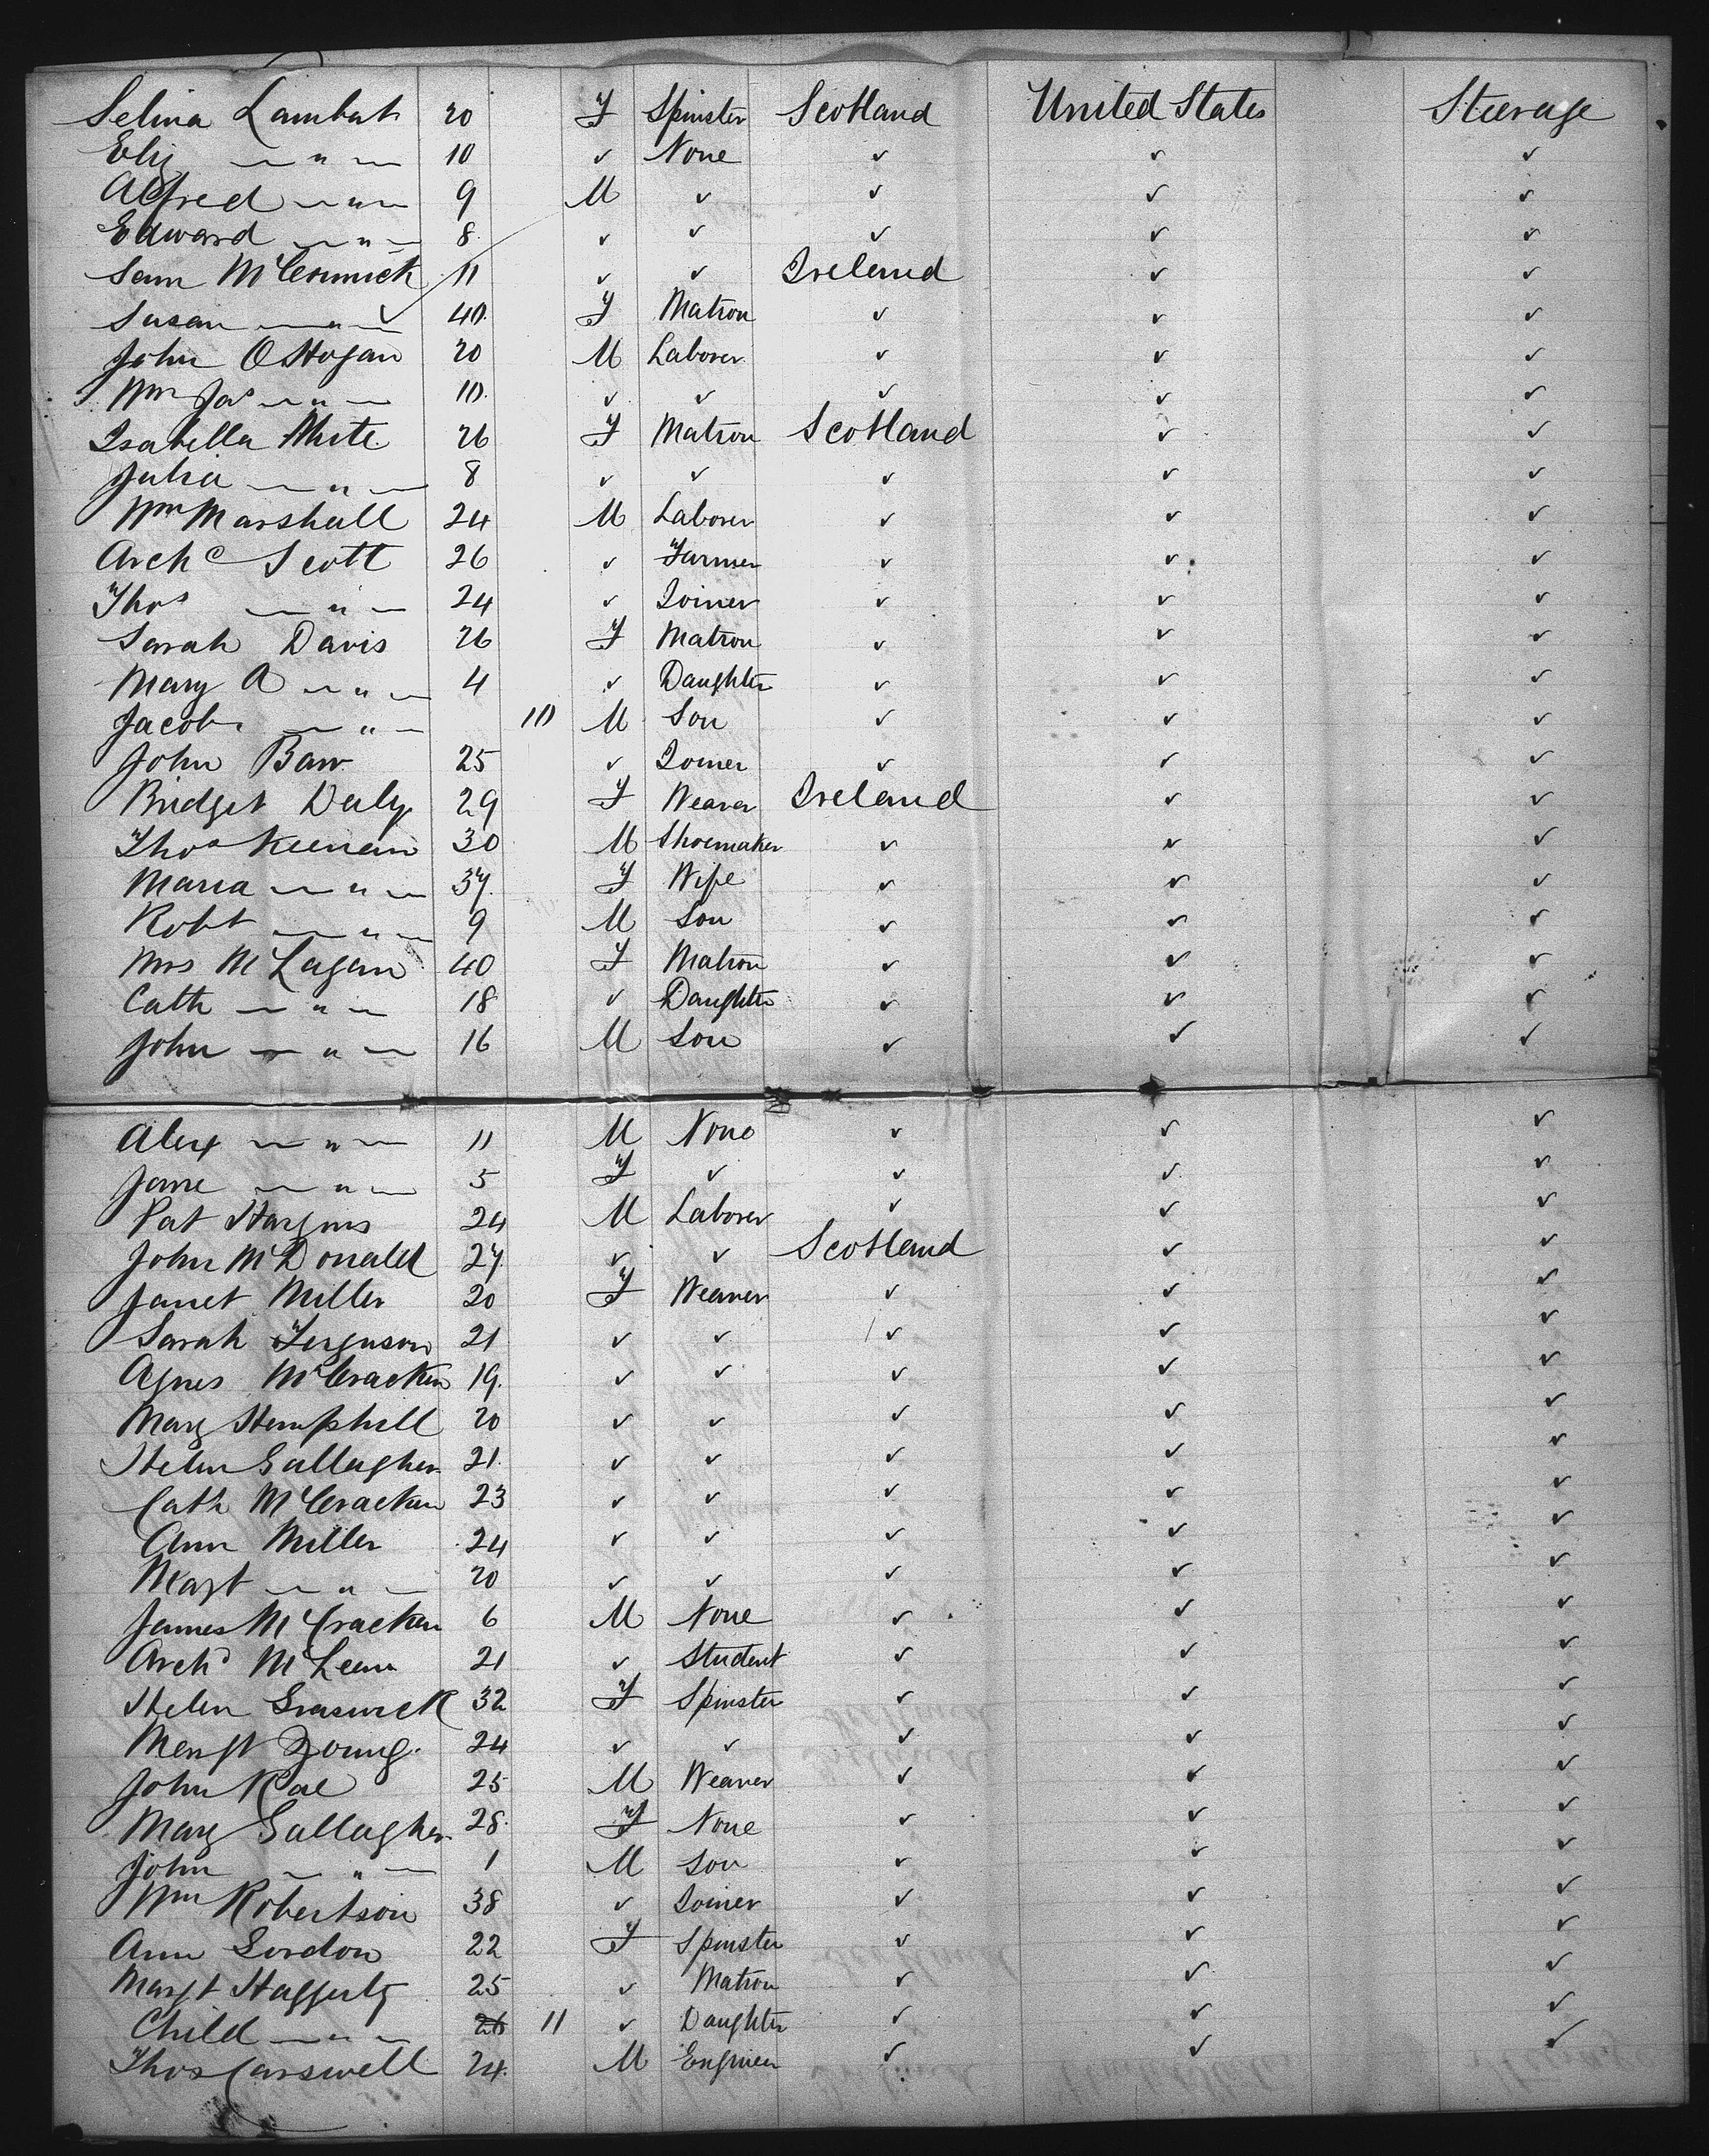 Selina Lambat 20 F Spinster Scotland United States Steerage
Eliz — " — 10 ✓ None ✓ ✓ ✓
Alfred — " — 9 M ✓ ✓ ✓ ✓
Edward — " — 8 ✓ ✓ ✓ ✓ ✓
Sam McCormick 11 ✓ ✓ Ireland ✓ ✓
Susan — " — 40 F Matron ✓ ✓ ✓
John O Hogan 20 M Laborer ✓ ✓ ✓
Wm Jas — " — 10 ✓ ✓ ✓ ✓ ✓
Isabella White 26 F Matron Scotland ✓ ✓
Julia — " — 8 ✓ ✓ ✓ ✓ ✓
Wm Marshall 24 M Laborer ✓ ✓ ✓
Archd Scott 26 ✓ Farmer ✓ ✓ ✓
Thos — " — 24 ✓ Joiner ✓ ✓ ✓
Sarah Davis 26 F Matron ✓ ✓ ✓
Mary A — " — 4 ✓ Daughter ✓ ✓ ✓
Jacob — " — 10 M Son ✓ ✓ ✓
John Barr 25 ✓ Joiner ✓ ✓ ✓
Bridget Daly 29 F Weaver Ireland ✓ ✓
Thos Keenan 30 M Shoemaker ✓ ✓ ✓
Maria — " — 37 F Wife ✓ ✓ ✓
Robt — " — 9 M Son ✓ ✓ ✓
Mrs McLagan 40 F Matron ✓ ✓ ✓
Cath — " — 18 ✓ Daughter ✓ ✓ ✓
John — " — 16 M Son ✓ ✓ ✓
Alex — " — 11 M None ✓ ✓ ✓
Jane — " — 5 F ✓ ✓ ✓ ✓
Pat 24 M Laborer ✓ ✓ ✓
John McDonald 27 ✓ ✓ Scotland ✓ ✓
Janet Miller 20 F Weaver ✓ ✓ ✓
Sarah Ferguson 21 ✓ ✓ ✓ ✓ ✓
Agnes McCracken 19 ✓ ✓ ✓ ✓ ✓
Mary Hemphill 20 ✓ ✓ ✓ ✓ ✓
Helen Gallagher 21 ✓ ✓ ✓ ✓ ✓
Cath McCracken 23 ✓ ✓ ✓ ✓ ✓
Ann Miller 24 ✓ ✓ ✓ ✓ ✓
Margt — " — 20 ✓ ✓ ✓ ✓ ✓
James McCracken 6 M None ✓ ✓ ✓
Archd McLean 21 ✓ Student ✓ ✓ ✓
Helen 32 F Spinster ✓ ✓ ✓
Margt Young 24 ✓ ✓ ✓ ✓ ✓
John Rae 25 M Weaver ✓ ✓ ✓
Mary Gallagher 28 F None ✓ ✓ ✓
John — " — 1 M Son ✓ ✓ ✓
Wm Robertson 38 ✓ Joiner ✓ ✓ ✓
Ann Gordon 22 F Spinster ✓ ✓ ✓
Margt Haggerty 25 ✓ Matron ✓ ✓ ✓
Child — " — 26 11 ✓ Daughter ✓ ✓ ✓
Thos Carswell 24 M Engineer ✓ ✓ ✓